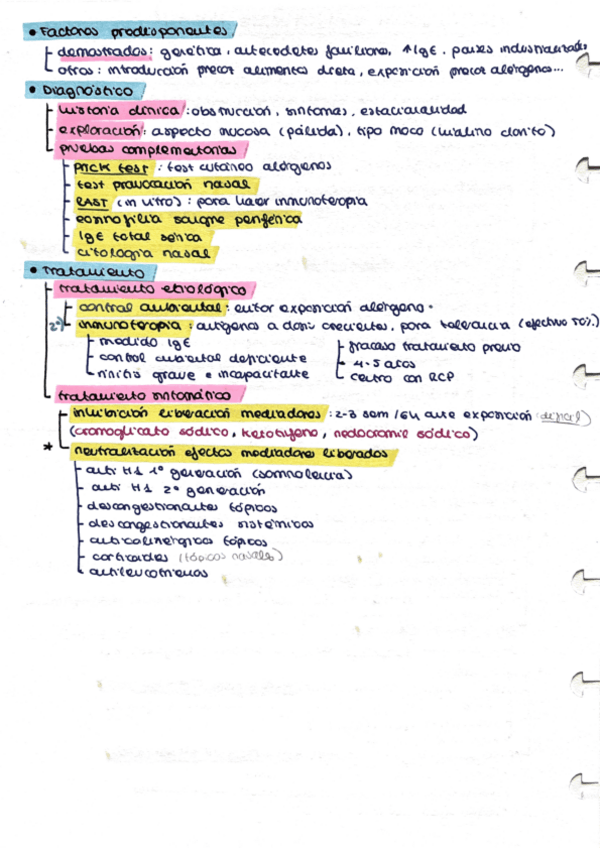 • Factores predisponentes
demostrados: genética, antecedentes familiares, ↑IgE, países industrializados
otros: introducción precoz alimentos dieta, exposición precoz alérgenos...
• Diagnóstico
historia clínica: obstrucción, síntomas, estacionalidad
exploración: aspecto mucosa (pálida), tipo moco (hialino clarito)
pruebas complementarias
PRICK test: test cutáneo alérgenos
test provocación nasal
RAST (in vitro): para hacer inmunoterapia
eosinofilia sangre periférica
IgE total sérica
citología nasal
• Tratamiento
tratamiento etiológico
control ambiental: evitar exposición alérgeno.
inmunoterapia: antígenos a dosis crecientes, para tolerancia (efectivo 50%.)
mediado IgE
control ambiental deficiente
rinitis grave e incapacitante
fracaso tratamiento previo
4-5 años
centro con RCP
tratamiento sintomático
inhibición liberación mediadores: 2-3 sem ante exposición (difícil)
(cromoglicato sódico, ketotifeno, nedocromil sódico)
* neutralización efectos mediadores liberados
anti H1 1ª generación (somnolencia)
anti H1 2ª generación
descongestionantes tópicos
descongestionantes sistémicos
anticolinérgicos tópicos
corticoides (tópicos nasales)
antileucotrienos